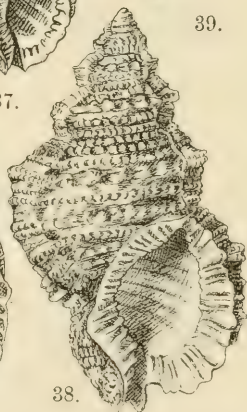 39.
37.
38.